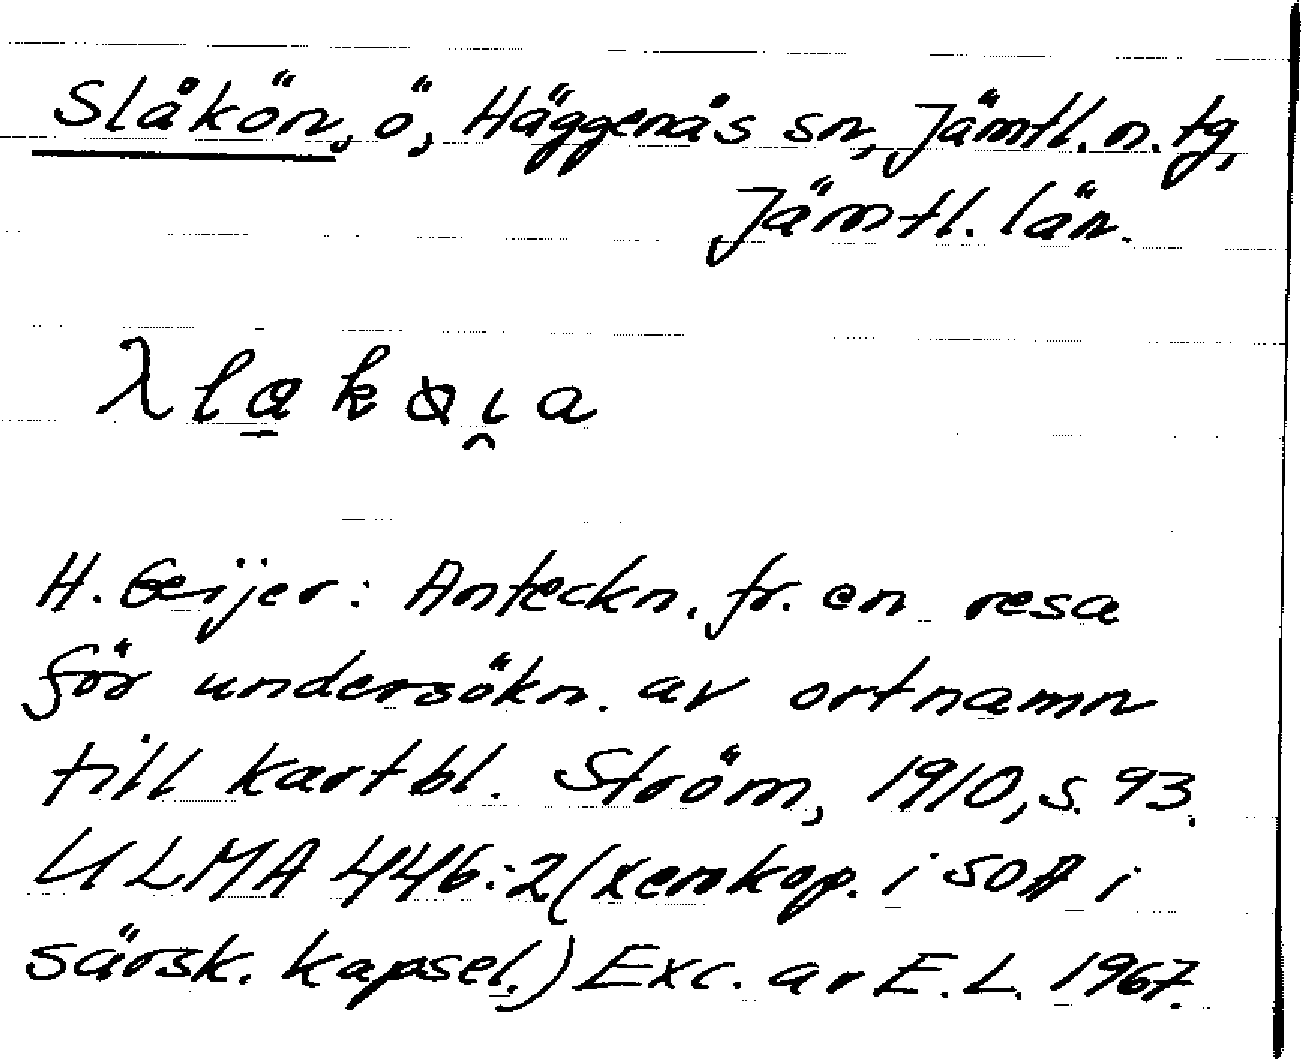 Slåkön, ö, Häggenås sn, Jämtl. n. tg,
Jämtl. län.
H. Geijer: Anteckn. fr. en resa
för undersökn. av ortnamn
till kartbl. Ström, 1910, s. 93.
ULMA 446:2 (xerokop. i SOA i
särsk. kapsel.) Exc. av E.L. 1967.